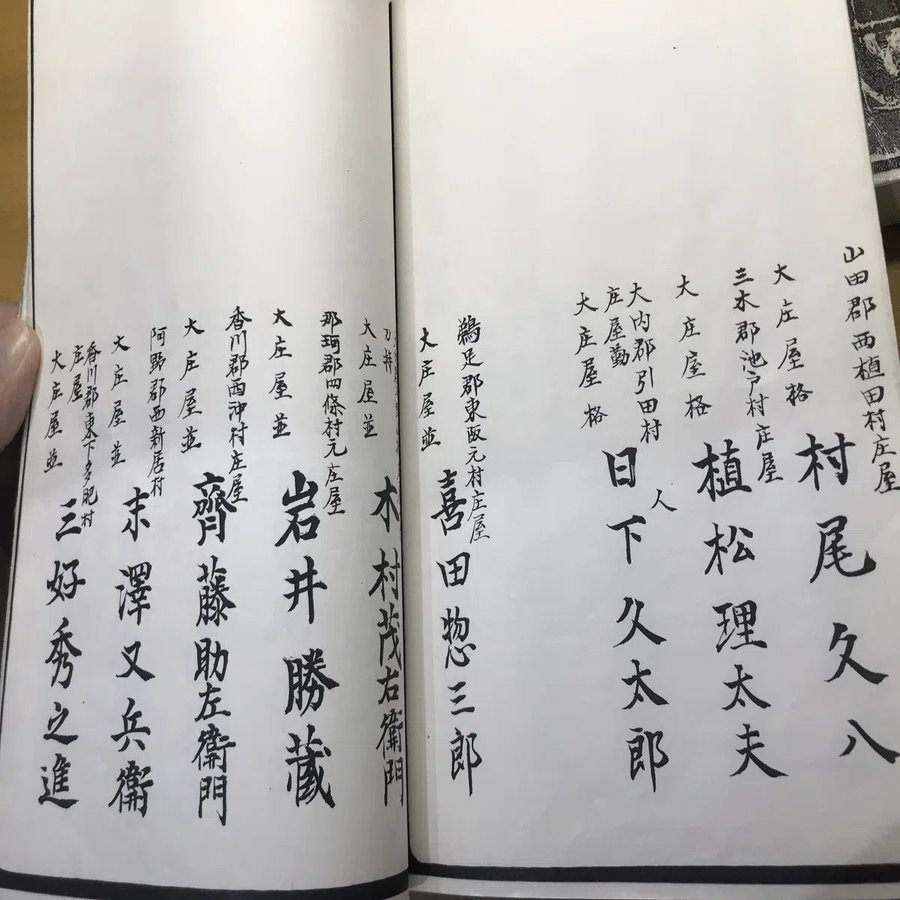 山田郡西植田村庄屋
大庄屋格
村尾久八
三木郡池戸村庄屋
大庄屋格
植松理太夫
大内郡引田村
庄屋勤人
大庄屋格
日下久太郎
鵜足郡東阪元村庄屋
大庄屋並
喜田惣三郎
大庄屋並
木村茂右衛門
那珂郡四條村元庄屋
大庄屋並
岩井勝蔵
香川郡西沖村庄屋
大庄屋並
齊藤助左衛門
阿野郡西新居村
大庄屋並
末澤又兵衛
香川郡東下多肥村
庄屋
大庄屋並
三好秀之進